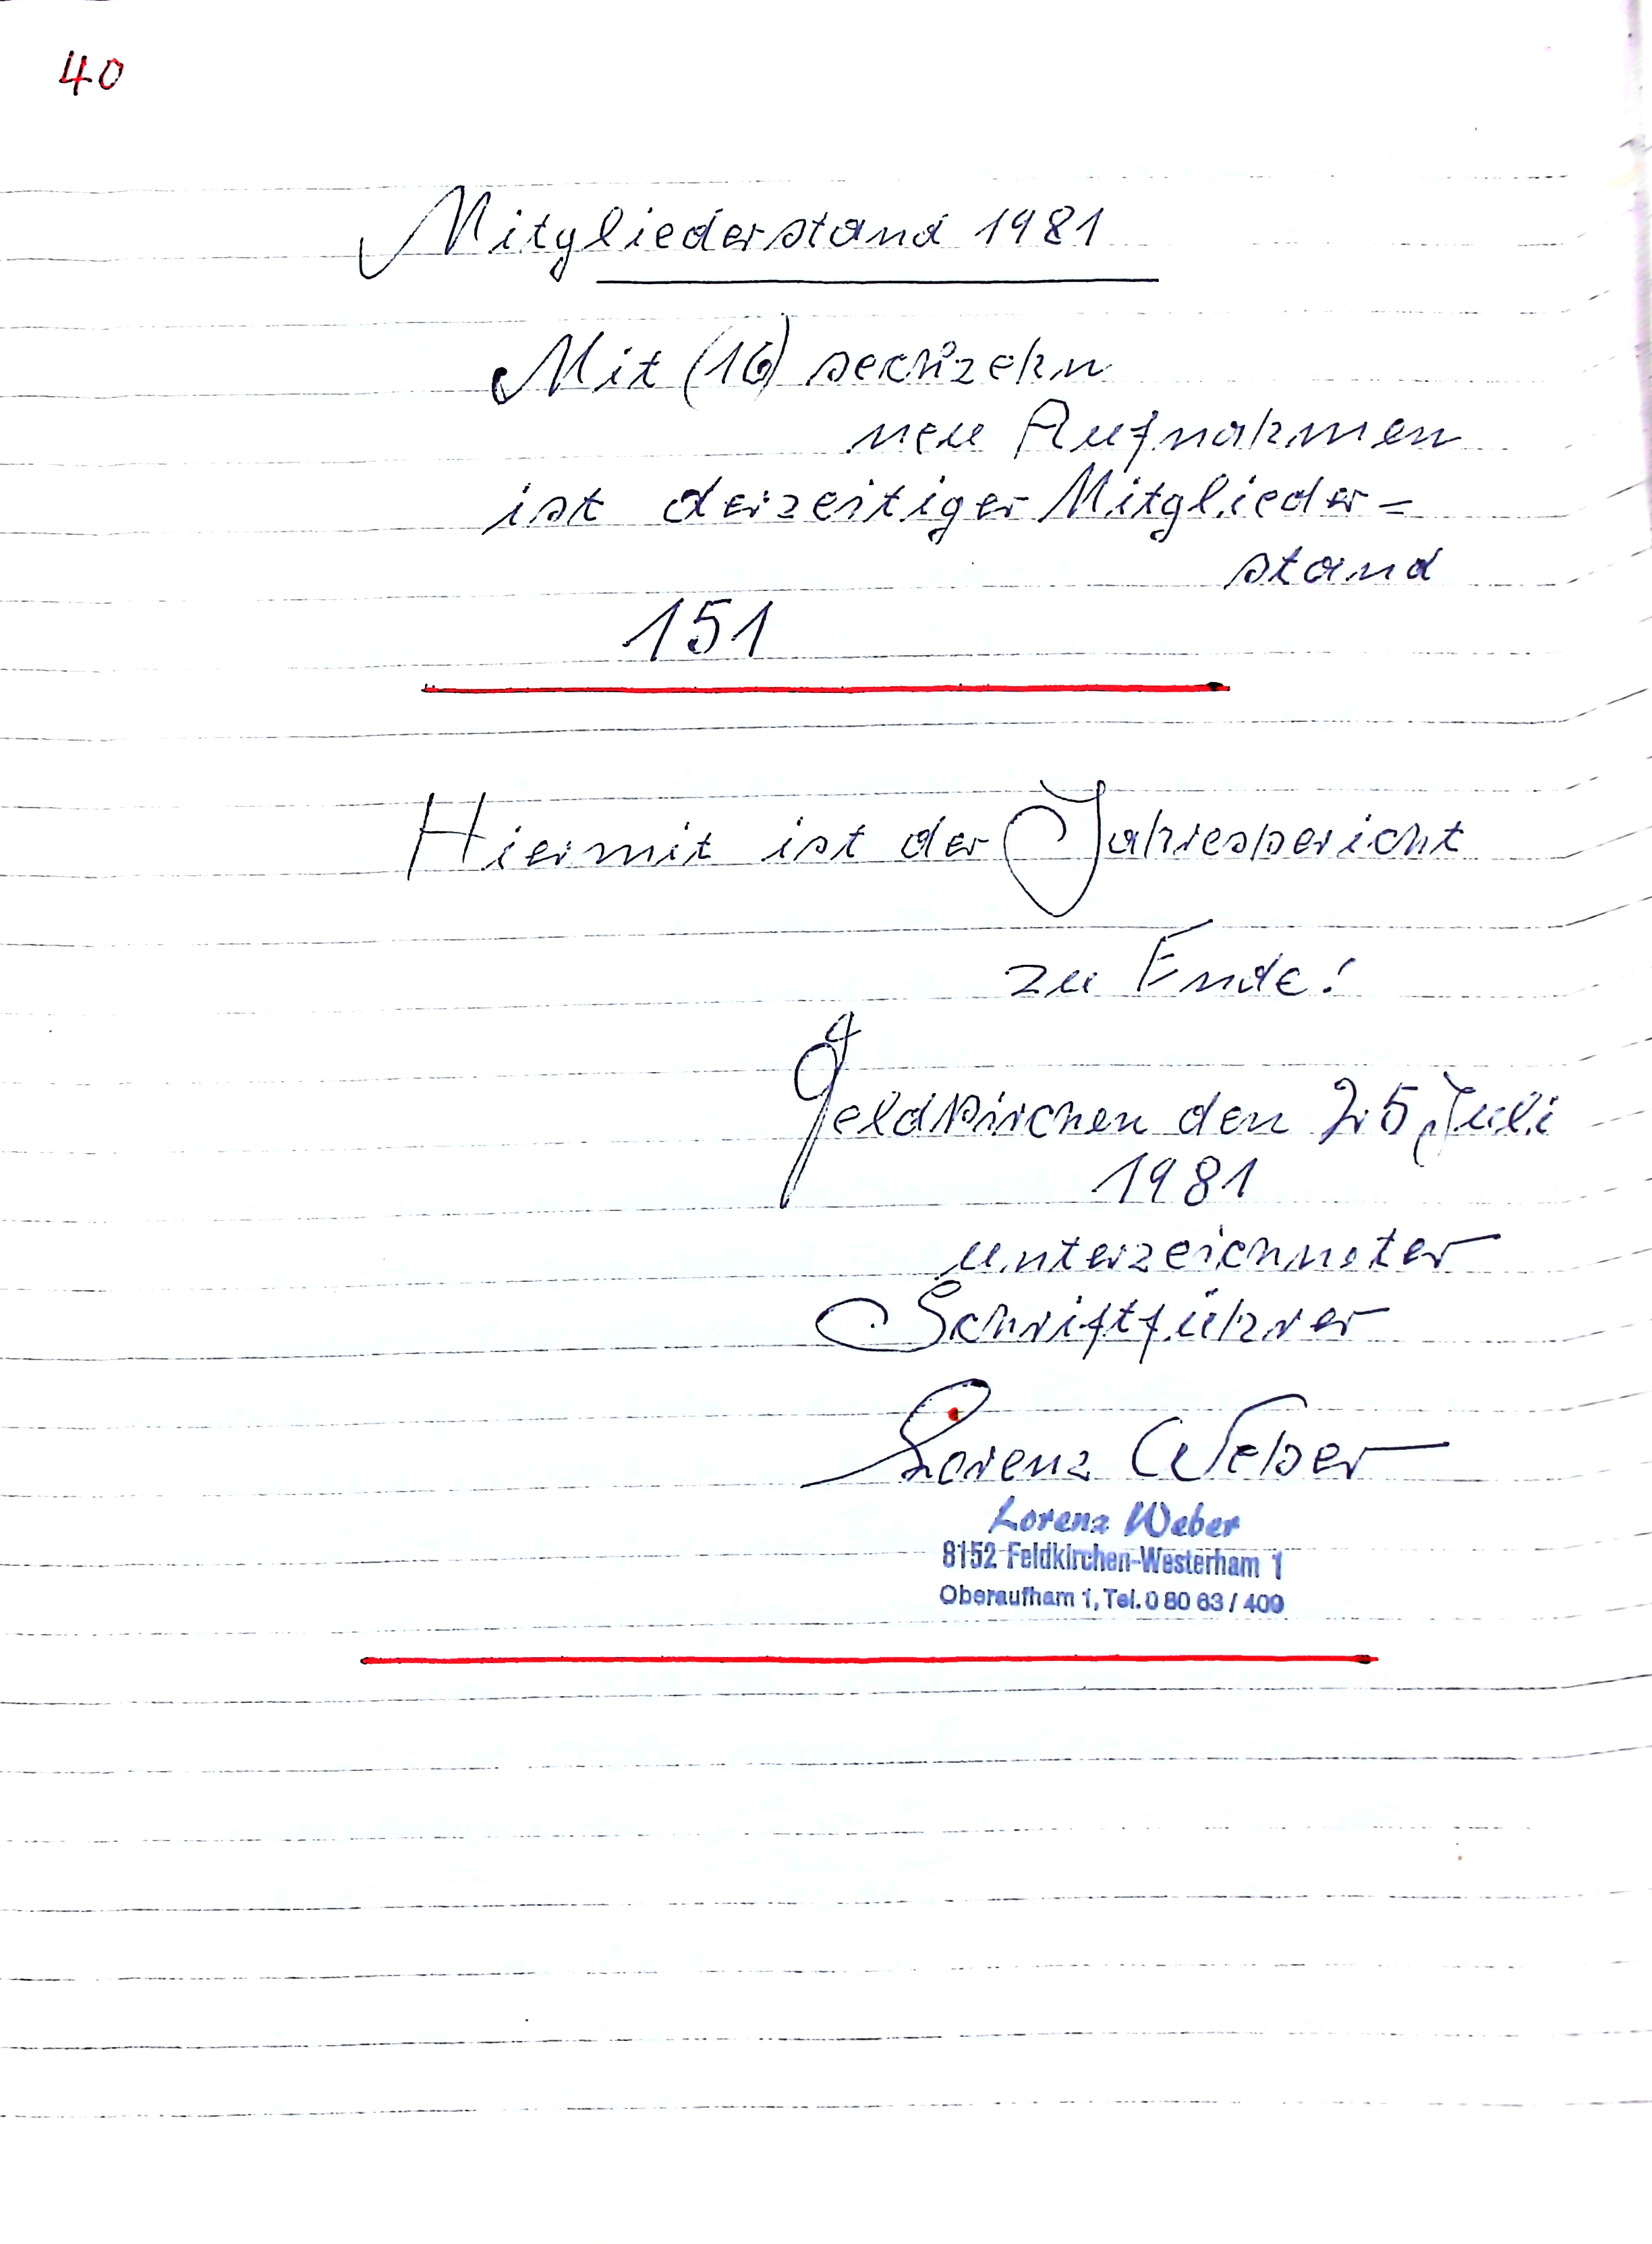 40
Mitgliederstand 1981
Mit (16) sechzehn
neu Aufnahmen
ist derzeitiger Mitglieder=
stand
151
Hiermit ist der Jahresbericht
zu Ende!
Feldkirchen den 25 Juli
1981
unterzeichneter
Schriftführer
Lorenz Weber
Lorenz Weber
8152 Feldkirchen-Westerham 1
Oberaufham 1, Tel. 0 80 63 / 409